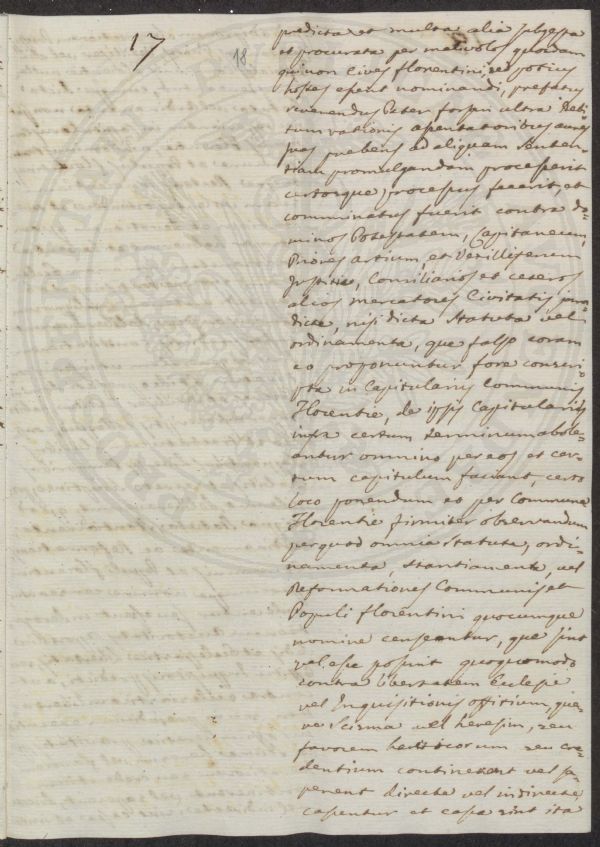 17
18
predicta et multa alia subgesta
et procurata per malivolos quosdam
qui non Cives florentini, sed potius
hostes essent nominandi, prefatus
reverendus Pater forsan ultra debi-
tum rationis assentatoribus aures
suas prebens ad aliquam senten-
tiam promulgandam processerit
certosque processus fecerit, et
comminatus fuerit contra do-
minos Potestatem, Capitaneum,
Priores artium, et Vexilliferum
Justitie, Consiliarios et ceteros
alios mercatores Civitatis pre-
dicte, nisi dicta Statuta vel
ordinamenta, que falso coram
eo proponuntur fore conscri-
pta in Capitulariis Communis
Florentie, de ipsis Capitulariis
infra certum terminum abole-
antur omnino per eos et cer-
tum capitulum faciant, certo
loco ponendum eo per Commune
Florentie firmiter observandum
per quod omnia Statuta, ordi-
namenta, stantiamenta, vel
Reformationes Communis et
Populi florentini quocumque
nomine censeantur, que sint
vel esse possint quoquomodo
contra libertatem Ecclesie
vel Inquisitionis offitium, que-
ve Scisma vel heresim, seu
favorem hereticorum seu cre-
dentium continerent vel sa-
perent directe vel indirecte
cassentur et cassa sint ita